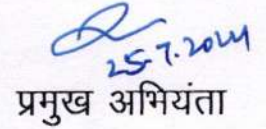 25.7.2024
प्रमुख अभियंता